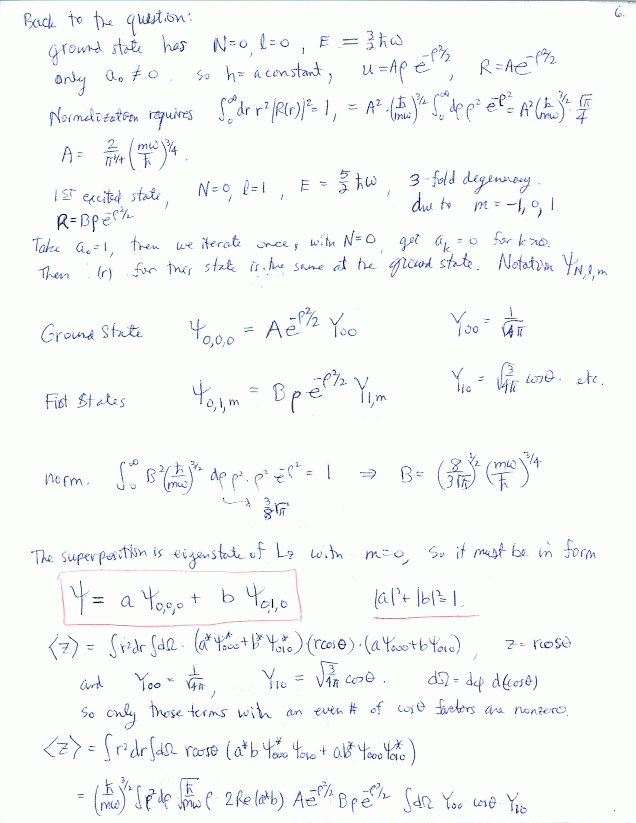 6.
Back to the question:
ground state has N=0, l=0, E = 3/2 ħω
only a₀ ≠ 0. so h = a constant, u = Aρ e^{-ρ²/2}, R = Ae^{-ρ²/2}
Normalization requires ∫₀^∞ dr r² |R(r)|² = 1, = A² · (ħ/mω)^{3/2} ∫₀^∞ dρ ρ² e^{-ρ²} = A² (ħ/mω)^{3/2} · √π/4
A = 2/π^{1/4} (mω/ħ)^{3/4}.
1ST excited state, N=0, l=1, E = 5/2 ħω, 3-fold degeneracy.
R = Bρ e^{-ρ²/2} due to m = -1, 0, 1
Take a₀=1, then we iterate once, with N=0, get a_k = 0 for k>0.
Then (r) for this state is the same at the ground state. Notation Ψ_{N,l,m}
Ground State Ψ_{0,0,0} = A e^{-ρ²/2} Y₀₀ Y₀₀ = 1/√4π
First States Ψ_{0,1,m} = B ρ e^{-ρ²/2} Y_{1,m} Y₁₀ = √(3/4π) cosθ. etc.
norm. ∫₀^∞ B² (ħ/mω)^{3/2} dρ ρ² · ρ² e^{-ρ²} = 1 ⇒ B = (8/3√π)^{1/2} (mω/ħ)^{3/4}
↳ 3/8 √π
The superposition is eigenstate of L_z with m=0, so it must be in form
Ψ = a Ψ_{0,0,0} + b Ψ_{0,1,0} |a|² + |b|² = 1.
⟨z⟩ = ∫r²dr ∫dΩ · (a* Ψ*₀₀₀ + b* Ψ*₀₁₀) (r cosθ) · (a Ψ₀₀₀ + b Ψ₀₁₀), z = r cosθ
and Y₀₀ = 1/√4π, Y₁₀ = √(3/4π) cosθ. dΩ = dφ d(cosθ)
So only those terms with an even # of cosθ factors are nonzero.
⟨z⟩ = ∫r²dr ∫dΩ r cosθ (a*b Ψ*₀₀₀ Ψ₀₁₀ + ab* Ψ₀₀₀ Ψ*₀₁₀)
= (ħ/mω)^{3/2} ∫ρ²dρ √(ħ/mω) ρ · 2Re(a*b) A e^{-ρ²/2} Bρ e^{-ρ²/2} ∫dΩ Y₀₀ cosθ Y₁₀